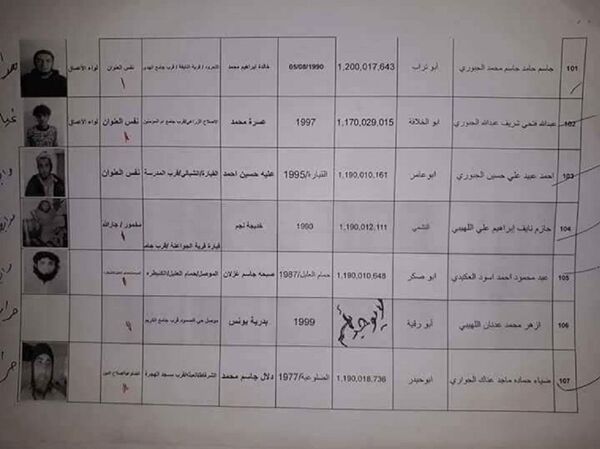 101 جاسم حامد جاسم محمد الجبوري ابو تراب 1,200,017,643 05/08/1990 خالدة ابراهيم محمد نفس العنوان لواء الأعماق
102 عبدالله فتحي شريف عبدالله الجبوري ابو الخلافة 1,170,029,015 1997 عسرة محمد نفس العنوان لواء الأعماق
103 احمد عبيد علي حسين الجبوري ابو عامر 1,190,010,161 القيارة/1995 عليه حسين احمد القيارة/الشيالي/قرب المدرسة نفس العنوان
104 حازم نايف ابراهيم علي اللهيبي 1,190,012,111 1993 خديجة نجم قيارة قرية الجواعنة /قرب جامع مخمور / جارالله
105 عبد محمود احمد اسود العكيدي ابو صكر 1,190,010,648 حمام العليل/1987 صبحه جاسم غزلان الموصل/حمام العليل/الكنيطره
106 ازهر محمد عدنان اللهيبي أبو رقية لا يوجد 1999 بدرية يونس موصل حي الصمود قرب جامع الكريم
107 ضياء حماده ماجد عناك الحواري ابو حيدر 1,190,018,736 1977/ دلال جاسم محمد قرب مسجد الهجرة